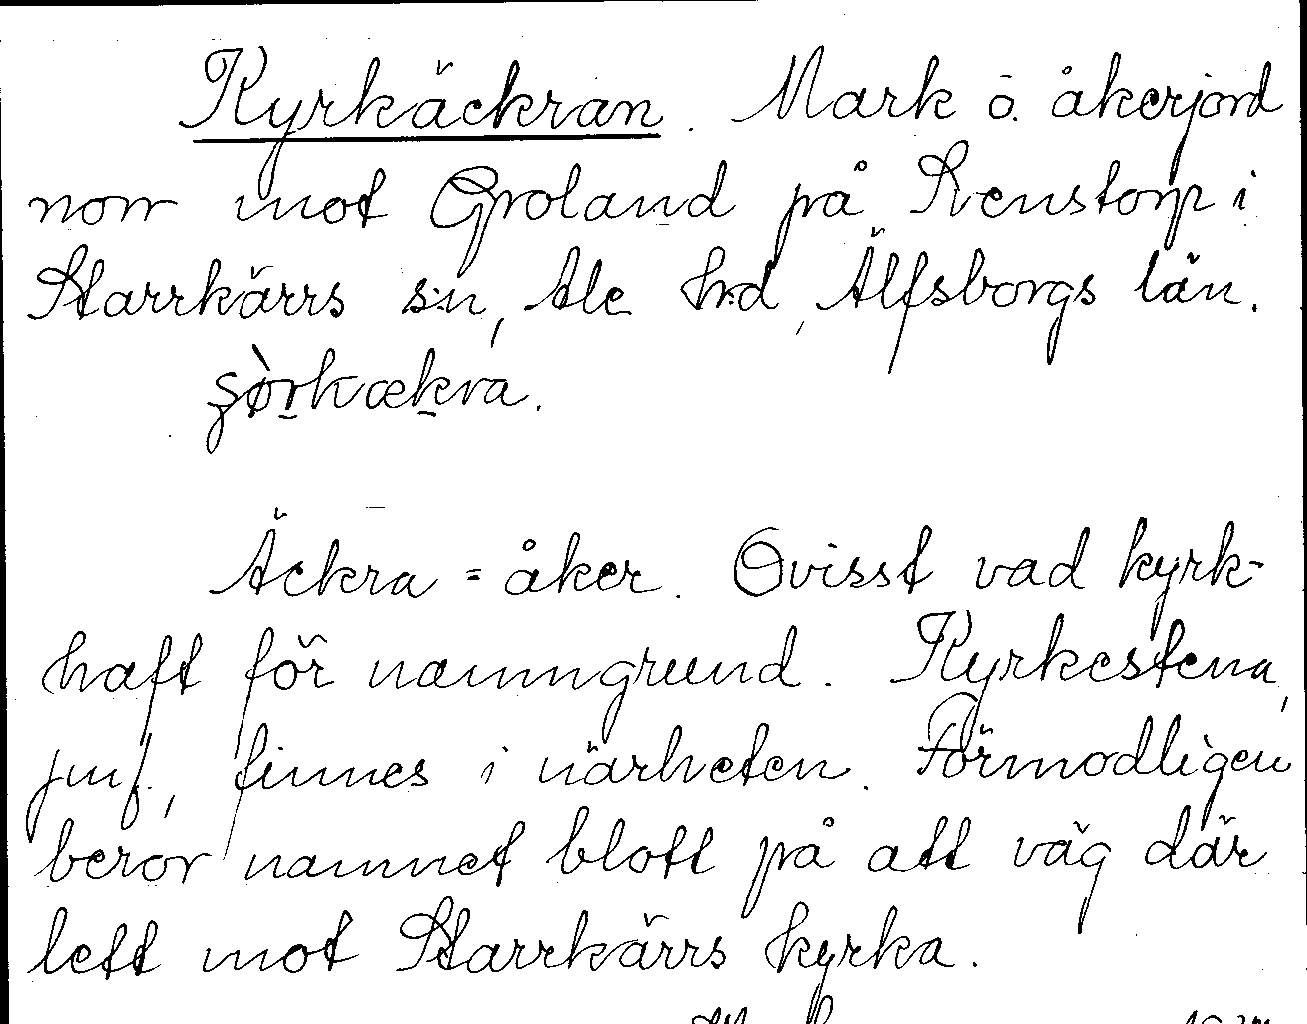 Kyrkäckran. Mark o. åkerjord
norr mot Groland på Svenstorp i
Starrkärrs s:n, Ale h:d, Älfsborgs län.
Äckra = åker. Ovisst vad kyrk-
haft för namngrund. Kyrkestena,
jmf., finnes i närheten. Förmodligen
beror namnet blott på att väg där
lett mot Starrkärrs kyrka.